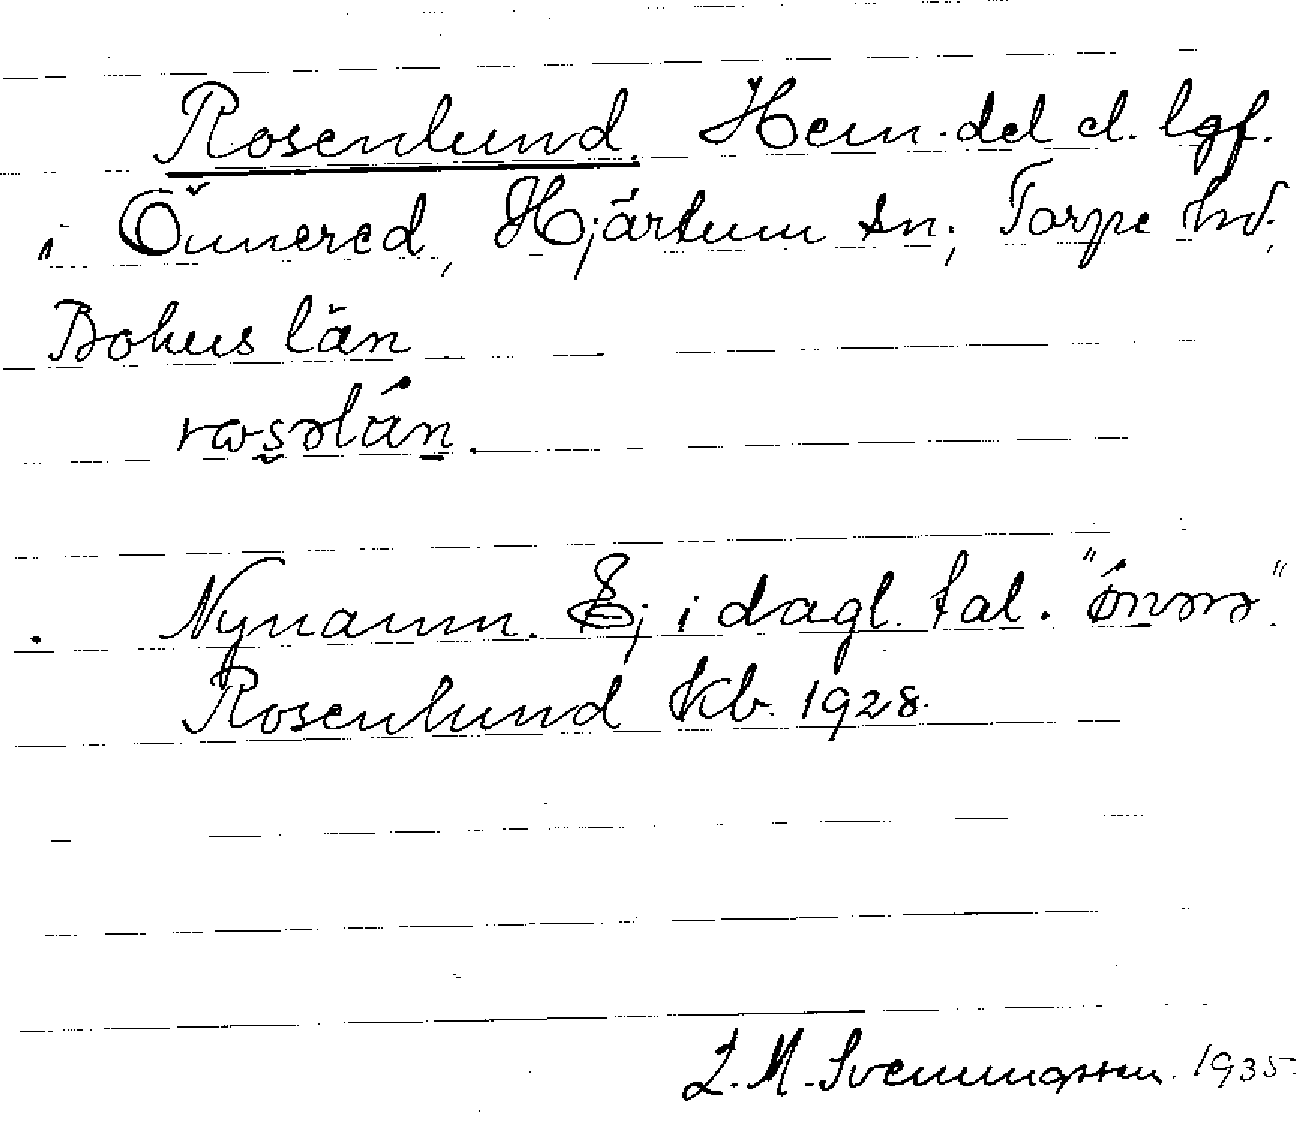 Rosenlund. Hem.del el. lgf.
i Önnered, Hjärtum sn; Torpe hd;
Bohus län
Nynamn. Ej i dagl. tal.
Rosenlund Kb. 1928.
L.M. Svenungsson 1935